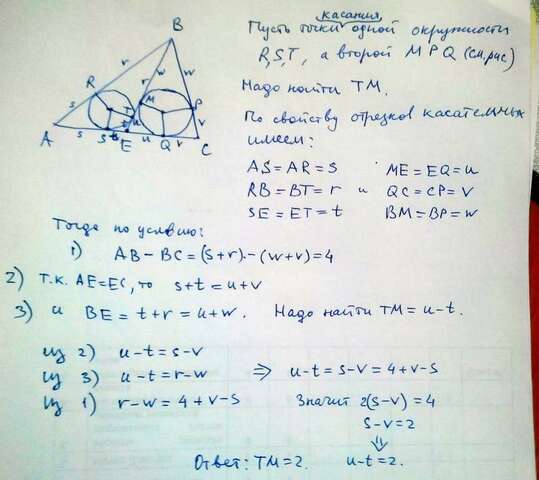 касания
Пусть точки одной окружности
R,S,T, а второй M P Q (см. рис)
Надо найти TM.
По свойству отрезков касательных
имеем:
AS=AR=S ME=EQ=u
RB=BT=r и QC=CP=V
SE=ET=t BM=BP=w
B
r
w
r
w
R
M
P
T
s
u
v
t
A
s
S
t
E
u
Q
v
C
Тогда по условию:
1) AB-BC=(s+r)-(w+v)=4
2) т.к. AE=EC, то s+t=u+v
3) и BE=t+r=u+w. Надо найти TM=u-t.
из 2) u-t=s-v
из 3) u-t=r-w ⇒ u-t=s-v=4+v-s
из 1) r-w=4+v-s Значит 2(s-v)=4
s-v=2
⇓
Ответ: TM=2. u-t=2.